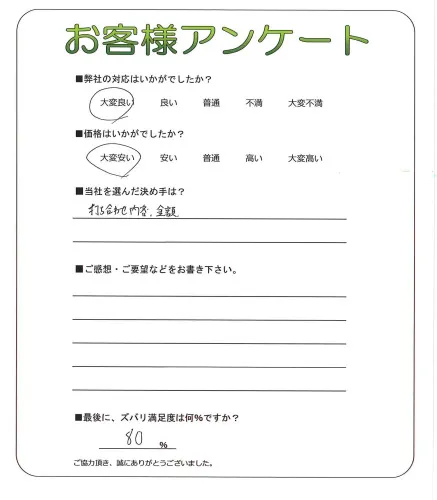 お客様アンケート
■弊社の対応はいかがでしたか？
大変良い 良い 普通 不満 大変不満
■価格はいかがでしたか？
大変安い 安い 普通 高い 大変高い
■当社を選んだ決め手は？
打ち合わせ内容、金額
■ご感想・ご要望などをお書き下さい。
■最後に、ズバリ満足度は何％ですか？
80 ％
ご協力頂き、誠にありがとうございました。